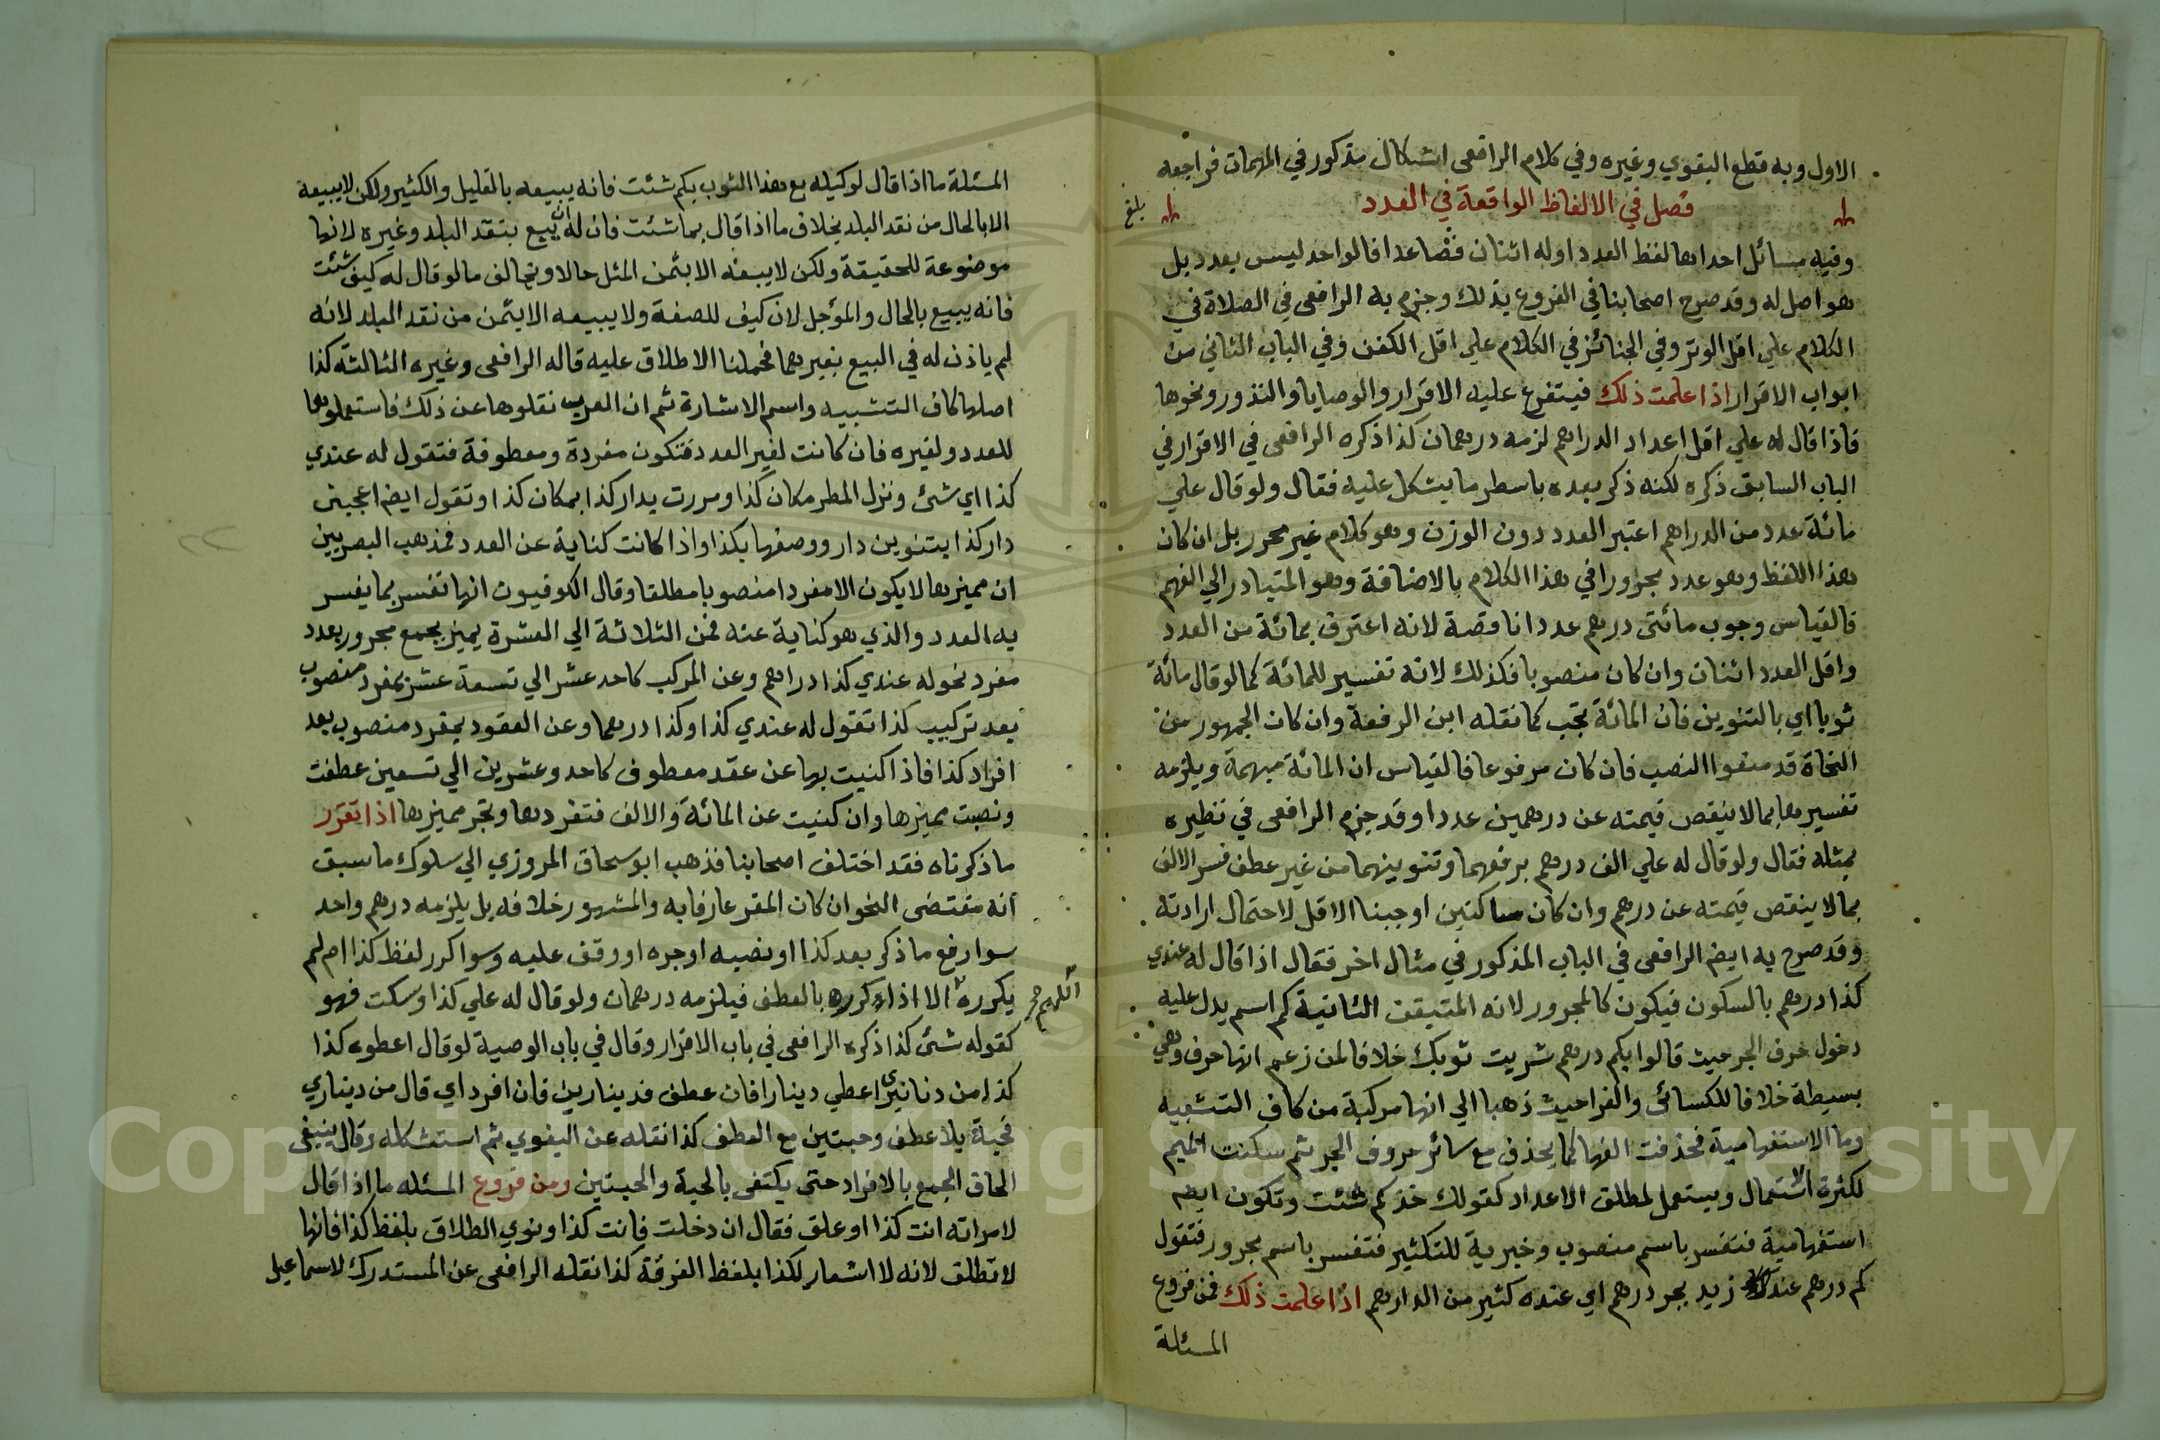 الاول وبه قطع البغوي وغيره وفي كلام الرافعي اشكال مذكور في المهمات فراجعه
فصل في الالفاظ الواقعة في العدد
بلغ
وفيه مسائل احداها لفظ العدد اوله اثنان فصاعدا فالواحد ليس بعدد بل
هو اصل له وقد صرح اصحابنا في الفروع بذلك وجزم به الرافعي في الصلاة في
الكلام علي اقل الوتر وفي الجنائز في الكلام علي اقل الكفن وفي الباب الثاني من
ابواب الاقرار اذا علمت ذلك فيتفرع عليه الاقرار والوصايا والنذور ونحوها
فاذا قال له علي اقل اعداد الدراهم لزمه درهمان كذا ذكره الرافعي في الاقرار في
الباب السابق ذكره لكنه ذكر بعده باسطر ما يشكل عليه فقال ولو قال علي
مائة عدد من الدراهم اعتبر العدد دون الوزن وهو كلام غير محرر بل ان كان
هذا اللفظ وهو عدد مجرورا في هذا الكلام بالاضافة وهو المتبادر الي الفهم
فالقياس وجوب مائتي درهم عددا ناقصة لانه اعترف بمائة من العدد
واقل العدد اثنان وان كان منصوبا فكذلك لانه تفسير للمائة كما لو قال مائة
ثوبا اي بالتنوين فان المائة تجب كما نقله ابن الرفعة وان كان الجمهور من
النحاة قد منعوا النصب فان كان مرفوعا فالقياس ان المائة مبهمة ويلزمه
تفسيرها بما لا ينقص قيمته عن درهمين عددا وقد جزم الرافعي في نظيره
بمثله فقال ولو قال له علي الف درهم برفعهما وتنوينهما من غير عطف فسر الالف
بما لا ينقص قيمته عن درهم وان كان ساكنين اوجبنا الاقل لاحتمال ارادته
وقد صرح به ايضم الرافعي في الباب المذكور في مثال اخر فقال اذا قال له عندي
كذا درهم بالسكون فيكون كالمجرور لانه المتيقن الثانية كم اسم يدل عليه
دخول حرف الجر حيث قالوا بكم درهم شريت ثوبك خلافا لمن زعم انها حرف وهي
بسيطة خلافا للكسائي والفرا حيث ذهبا الي انها مركبة من كاف التشبيه
وما الاستفهامية فحذفت الفها كما يحذف مع سائر حروف الجر ثم سكنت الميم
لكثرة الاستعمال ويستعمل لمطلق الاعداد كقولك خذ كم شئت وتكون ايضم
استفهامية فتفسر باسم منصوب وخبرية للتكثير فتفسر باسم مجرور فتقول
كم درهم عند زيد بجر درهم اي عنده كثير من الدارهم اذا علمت ذلك فمن فروع
المسئلة
المسئلة ما اذا قال لوكيله بع هذا الثوب بكم شئت فانه يبيعه بالقليل والكثير ولكن لا يبيعه
الا بالحال من نقد البلد بخلاف ما اذا قال بما شئت فان له ان يبيع بنقد البلد وغيره لانها
موضوعة للحقيقة ولكن لا يبيعه الا بثمن المثل حالا ويخالف ما لو قال له كيف شئت
فانه يبيع بالحال والمؤجل لان كيف للصفة ولا يبيعه الا بثمن من نقد البلد لانه
لم ياذن له في البيع بغيرهما فحملنا الاطلاق عليه قاله الرافعي وغيره الثالثة كذا
اصلها كاف التشبيه واسم الاشارة ثم ان العرب نقلوها عن ذلك فاستعملوها
للعدد ولغيره فان كانت لغير العدد فتكون مفردة ومعطوفة فتقول له عندي
كذا اي شئ ونزل المطر مكان كذا ومررت بدار كذا بمكان كذا وتقول ايضم اعجبني
دار كذا بتنوين دار ووصفها بكذا واذا كانت كناية عن العدد فمذهب البصريين
ان مميزها لا يكون الا مفردا منصوبا مطلقا وقال الكوفيون انها تفسر بما يفسر
به العدد والذي هو كناية عنه فمن الثلاثة الي العشرة يميز بجمع مجرور بعدد
مفرد نحو له عندي كذا دراهم وعن المركب كاحد عشر الي تسعة عشر بمفرد منصوب
بعد تركيب كذا تقول له عندي كذا وكذا درهما وعن العقود بمفرد منصوب بعد
افراد كذا فاذا كنيت بها عن عقد معطوف كاحد وعشرين الي تسعين عطفت
ونصبت مميزها وان كنيت عن المائة والالف فتفردها وتجر مميزها اذا تقرر
ما ذكرناه فقد اختلف اصحابنا فذهب ابو سحاق المروزي الي سلوك ما سبق
انه مقتضي النحو ان كان المقر عارفا به والمشهور خلافه بل يلزمه درهم واحد
سوا رفع ما ذكر بعد كذا او نصبه او جره او وقف عليه وسوا كرر لفظ كذا ام لم
يكرره الا اذا كرره بالعطف فيلزمه درهمان ولو قال له علي كذا وسكت فهو
كقوله شئ كذا ذكره الرافعي في باب الاقرار وقال في باب الوصية لو قال اعطوه كذا
كذا من دنانيري اعطي دينارا فان عطف فدينارين فان افرد اي قال من ديناري
فحبة بلا عطف وحبتين مع العطف كذا نقله عن البغوي ثم استشكله وقال ينبغي
الحاق الجمع بالافراد حتي يكتفي بالحبة والحبتين ومن فروع المسئله ما اذا قال
لامراته انت كذا او علق فقال ان دخلت فانت كذا ونوي الطلاق بلفظ كذا فانها
لا تطلق لانه لا اشعار لكذا بلفظ الفرقة كذا نقله الرافعي عن المستدرك لاسماعيل
Copyright © King Saud University